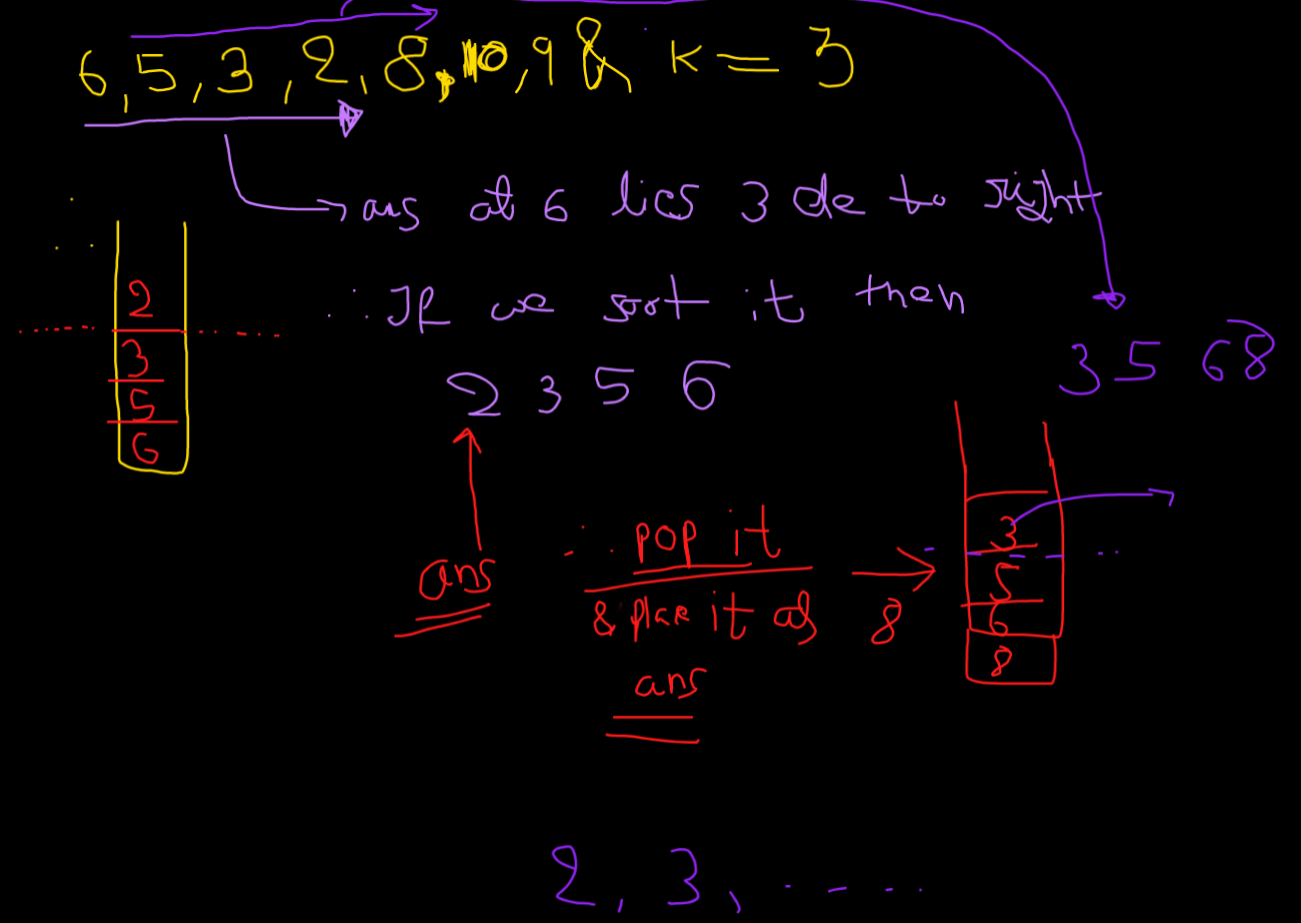 6, 5, 3, 2, 8, 10, 9 & K = 3
ans at 6 lies 3 de to right
∴ If we sort it, then
2 3 5 6
3 5 6 8
2
3
5
6
ans
∴ pop it
& place it as
ans
8
3
5
6
8
2, 3, - - - -